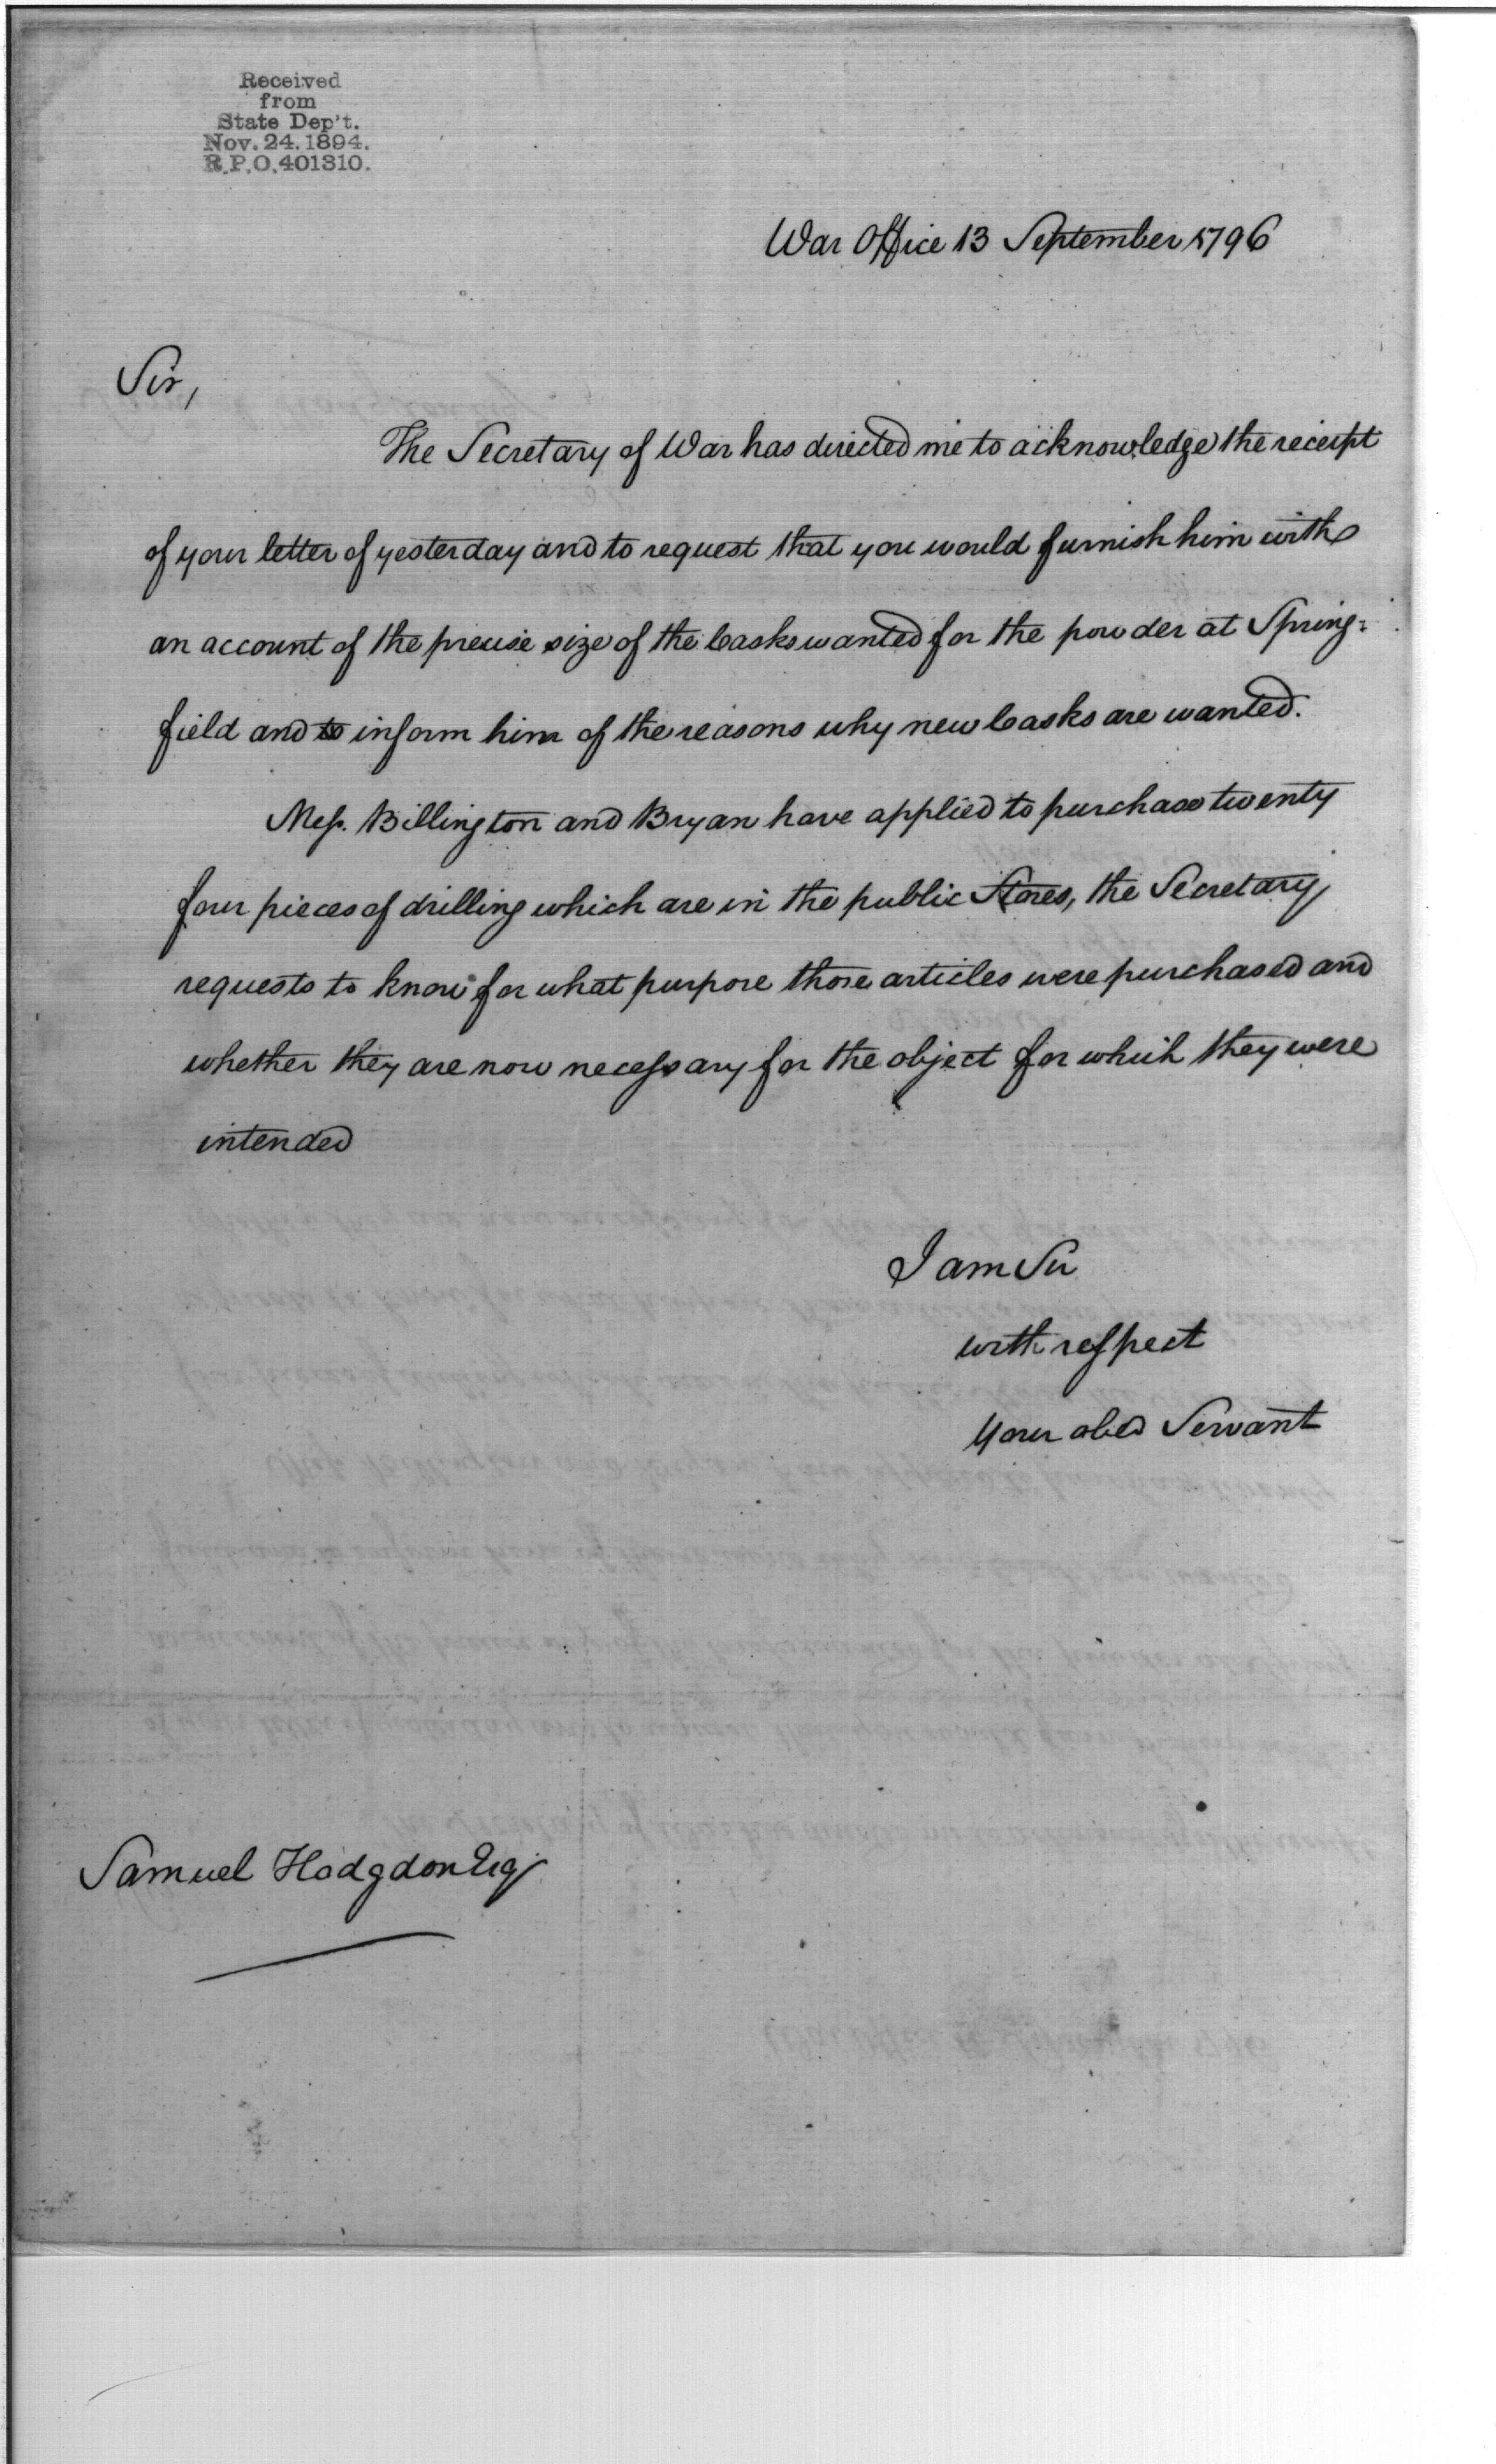 Received
from
State Dep't.
Nov. 24. 1894.
R.P.O. 401310.
War Office 13 September 1796
Sir,
The Secretary of War has directed me to acknowledge the receipt
of your letter of yesterday and to request that you would furnish him with
an account of the precise size of the Casks wanted for the powder at Spring=
field and to inform him of the reasons why new Casks are wanted.
Mess. Billington and Bryan have applied to purchase twenty
four pieces of drilling which are in the public Stores, the Secretary
requests to know for what purpose those articles were purchased and
whether they are now necessary for the object for which they were
intended
I am Sir
with respect
Your obed Servant
Samuel Hodgdon Esq